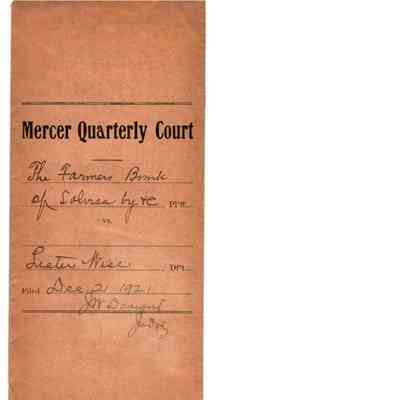 Mercer Quarterly Court
The Farmers Bank
of Salvisa by &c PPff
vs.
Lester Wise DFt
Filed Dec 21 1921
JW